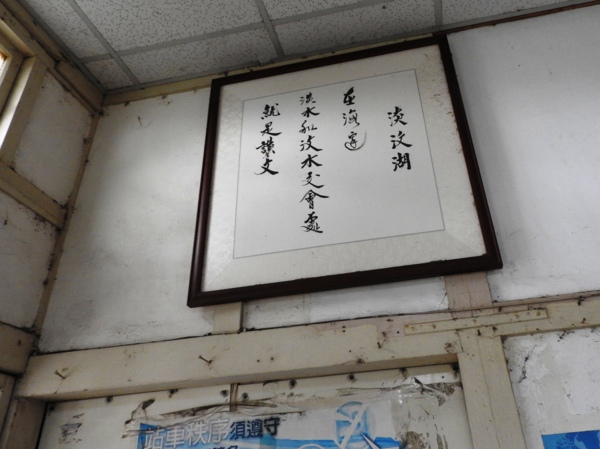 淡汶湖
在海邊
淡水和汶水交會處
就是談文
站車秩序須遵守